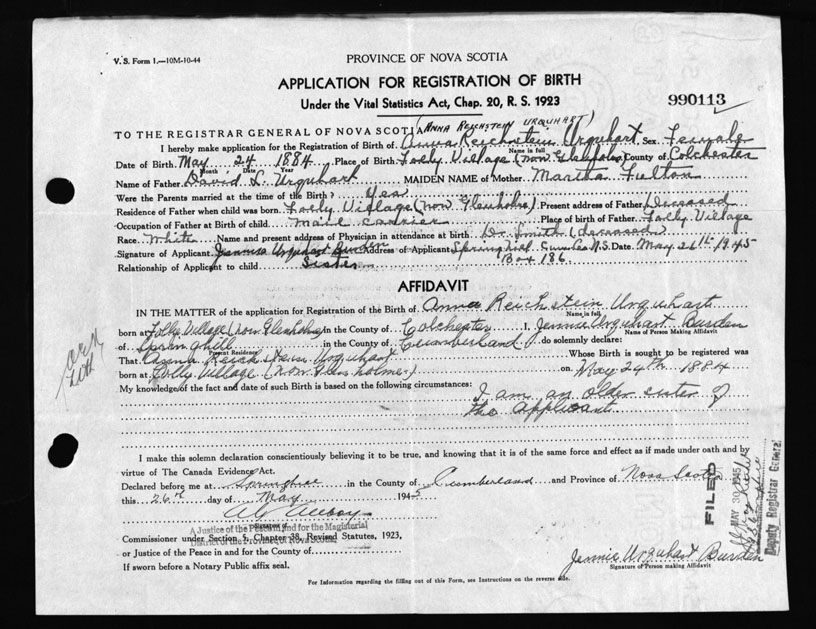 V. S. Form 1.—10M-10-44
PROVINCE OF NOVA SCOTIA
APPLICATION FOR REGISTRATION OF BIRTH
Under the Vital Statistics Act, Chap. 20, R. S. 1923
990113
(ANNA REICHSTEIN URQUHART)
TO THE REGISTRAR GENERAL OF NOVA SCOTIA
I hereby make application for the Registration of Birth of Anna Reichstein Urquhart Sex Female
Name in full
Date of Birth May 24 1884 Place of Birth Folly Village (now Glenholme) County of Colchester
Month Date Year
Name of Father David L. Urquhart MAIDEN NAME of Mother Martha Fulton
Were the Parents married at the time of the Birth? Yes
Residence of Father when child was born Folly Village (now Glenholme) Present address of Father Deceased
Occupation of Father at Birth of child Mail carrier Place of birth of Father Folly Village
Race White Name and present address of Physician in attendance at birth Dr. Smith (deceased)
Signature of Applicant Jennie Urquhart Burden Address of Applicant Springhill Cum. Co. N.S. Date May 26th 1945
Relationship of Applicant to child Sister Box 186
AFFIDAVIT
IN THE MATTER of the application for Registration of the Birth of Anna Reichstein Urquhart
Name in full
born at Folly Village (now Glenholme) in the County of Colchester I, Jennie Urquhart Burden
Name of Person Making Affidavit
of Springhill in the County of Cumberland do solemnly declare:
Present Residence
That Urquhart Whose Birth is sought to be registered was
born at Folly Village (now Glenholme) on May 24th 1884
My knowledge of the fact and date of such Birth is based on the following circumstances:
I am an older sister of
the applicant
I make this solemn declaration conscientiously believing it to be true, and knowing that it is of the same force and effect as if made under oath and by
virtue of The Canada Evidence Act.
Declared before me at Springhill in the County of Cumberland and Province of Nova Scotia
this 26th day of May 1945
A Justice of the Peace in and for the Magisterial
District of the Province of Nova Scotia
Commissioner under Section 5, Chapter 38, Revised Statutes, 1923,
or Justice of the Peace in and for the County of
If sworn before a Notary Public affix seal.
Jennie Urquhart Burden
Signature of Person making Affidavit
For Information regarding the filling out of this Form, see Instructions on the reverse side.
FILED
MAY 30 1945
Deputy Registrar General